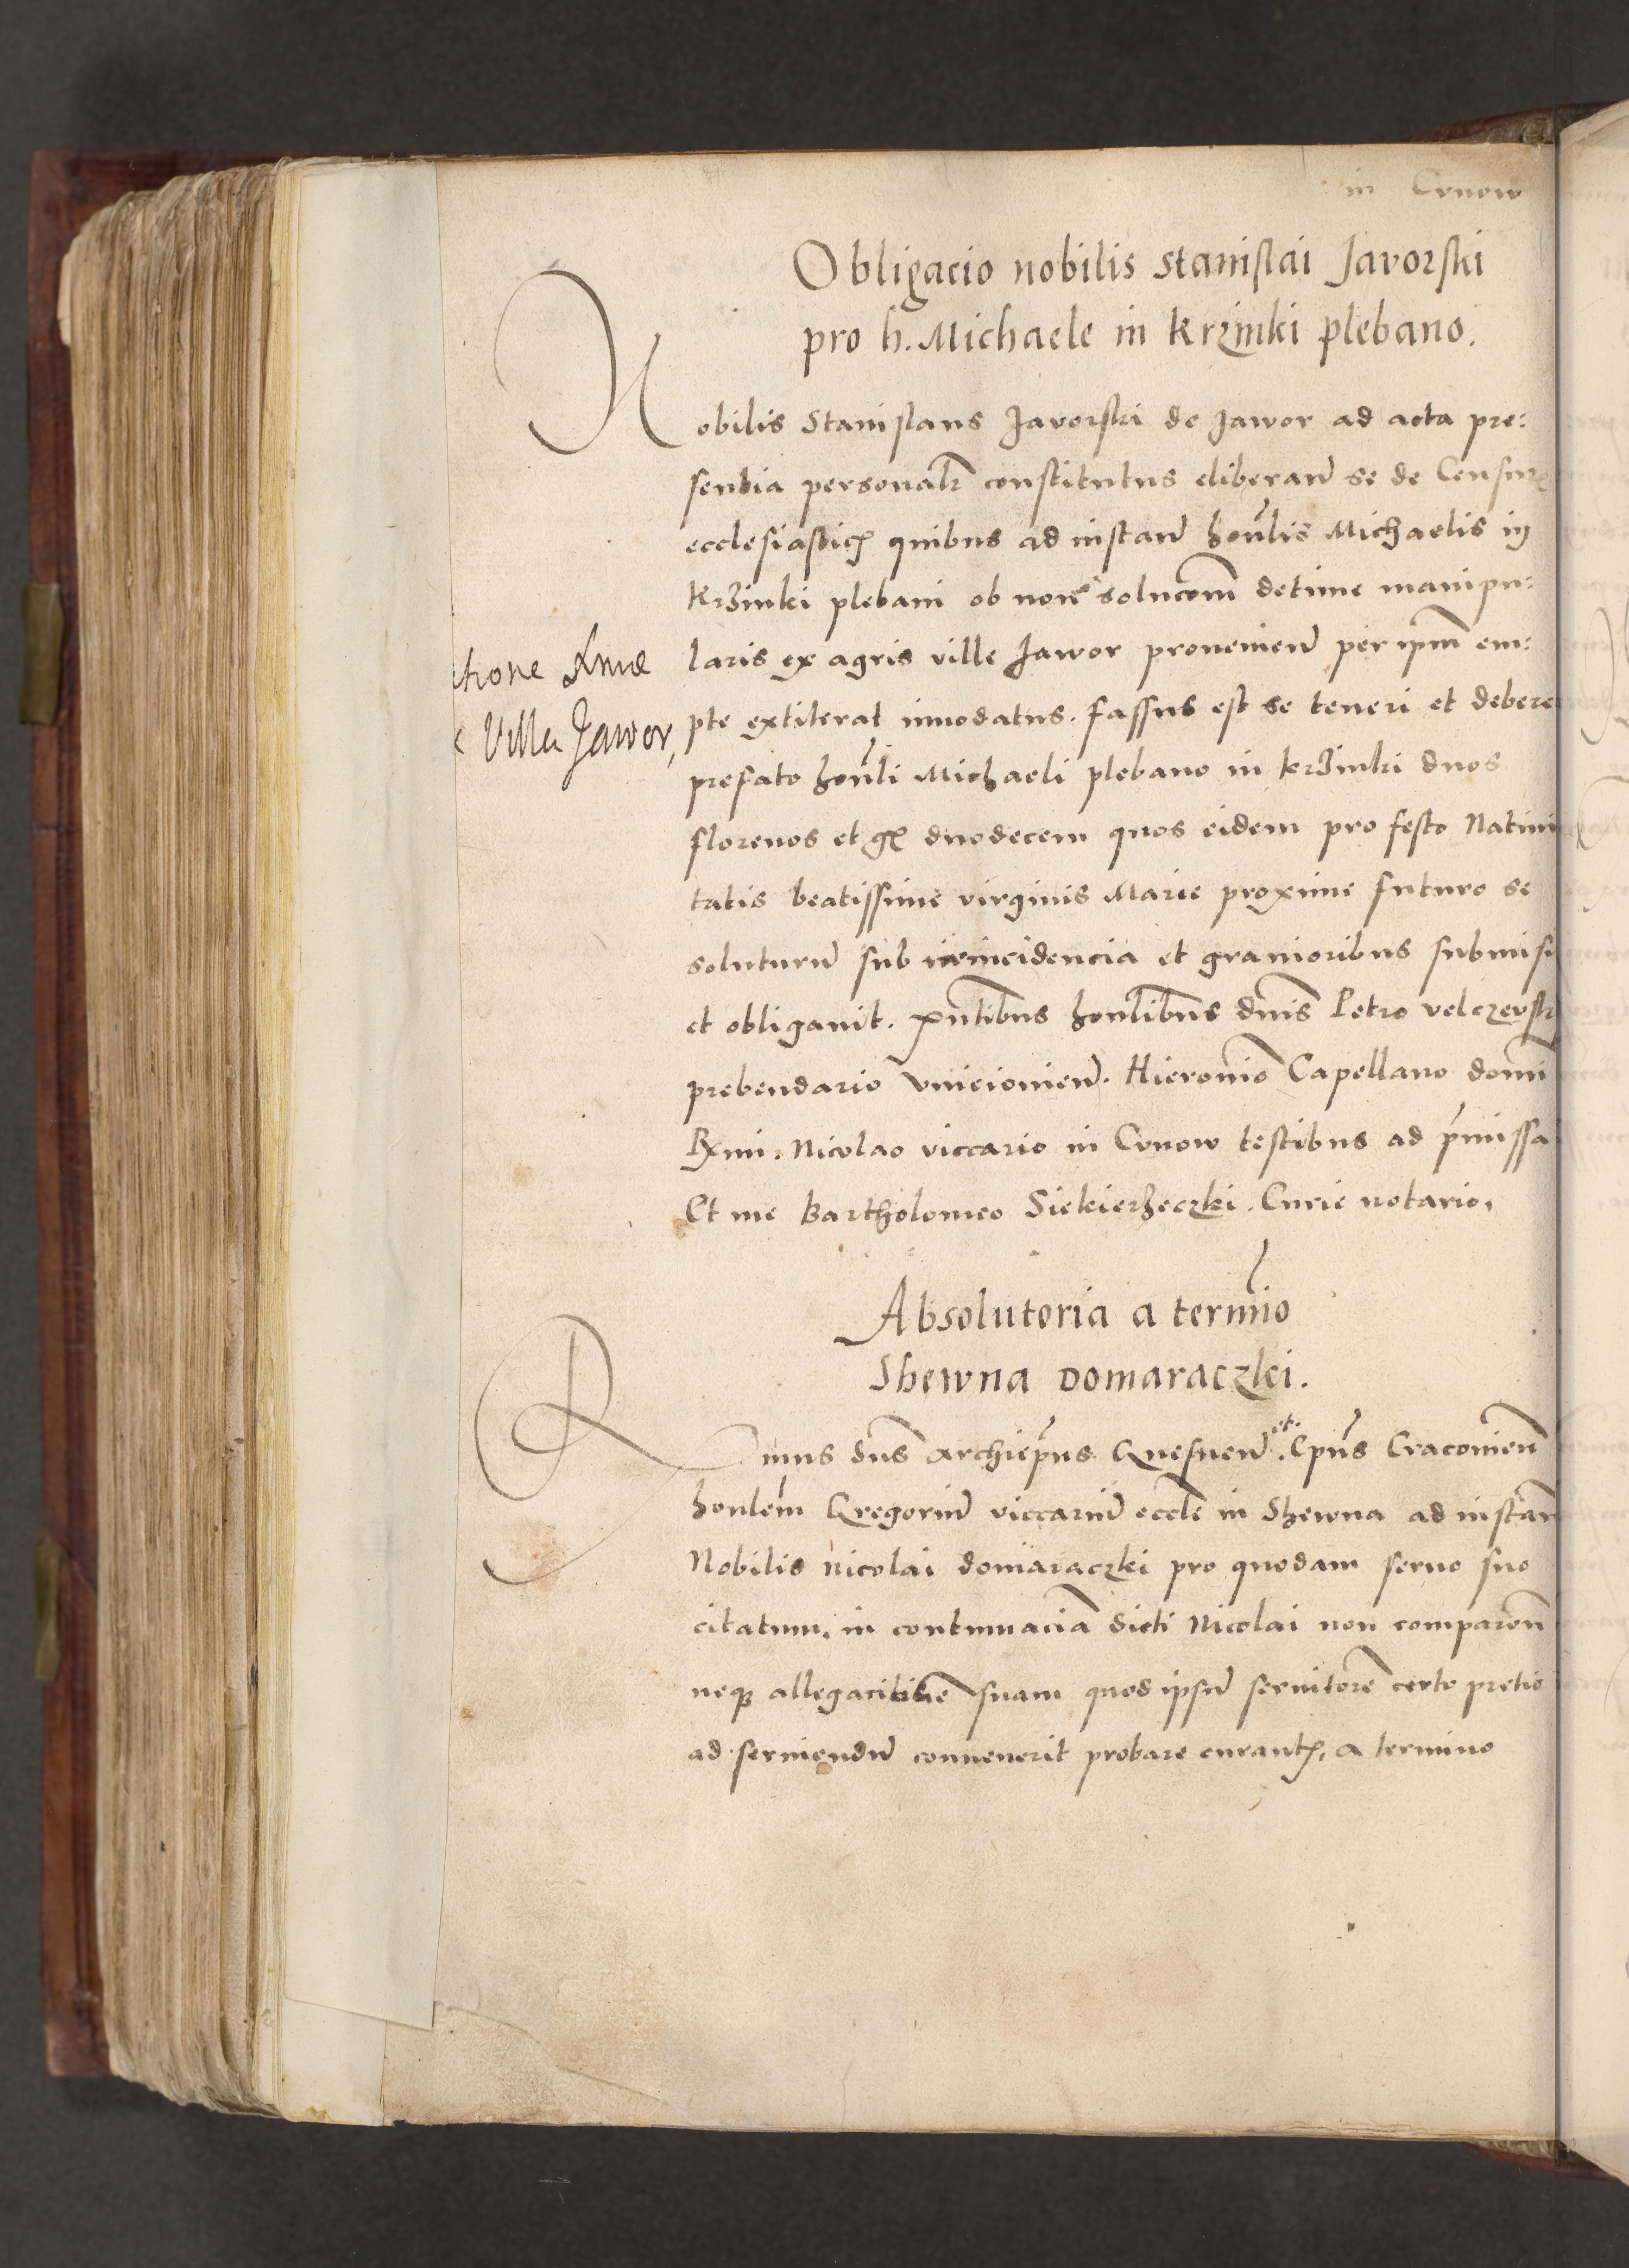 in Cunow
Obligacio nobilis Stanislai Javorski
pro h. Michaele in Krzinki plebano.
Nobilis Stanislaus Javorski de Jawor ad acta pre:
sentia personalr̃ constitutus eliberan̄ se de Censurꝭ
ecclesiasticꝭ quibus ad instan̄ hon̄lis Michaelis in
Krzinki plebani ob non solucōm decime manipu:
laris ex agris ville Jawor provenien̄ per ip̄m em:
thone Xmæ
pte extiterat innodatus. fassus est se teneri et debere
Villa Jawor,
prefato hon̄li Michaeli plebano in krzinki duos
florenos et gꝭ duodecem quos eidem pro festo Nativi
tatis beatissime virginis Marie proxime futuro se
soluturū sub reincidencia et gravioribus submisi
et obligavit. pn̄tibus honlibus dn̄is Petro velczevski
prebendario Unieionien̄. Hieronīo Capellano domī
Rxmi. Nicolao viccario in Cunow testibus ad p̄missa
Et me Bartholomeo Siekierzeczki. Curie notario.
Absolutoria a termīo
Shewna Domaraczki.
Rmus dn̄s Archiep̄us Gnesnen̄. et. Ep̄us Cracovien̄
honlem̄ Gregoriū viccariū eccl̄e in Shewna ad instan̄
Nobilis Nicolai domaraczki pro quodam servo suo
citatum. in contumaciā dicti Nicolai non comparen̄
neqꝫ allegacionē suam quod ipsū servitorē certo pretio
ad serviendū convenerit probare curantꝭ, a termino